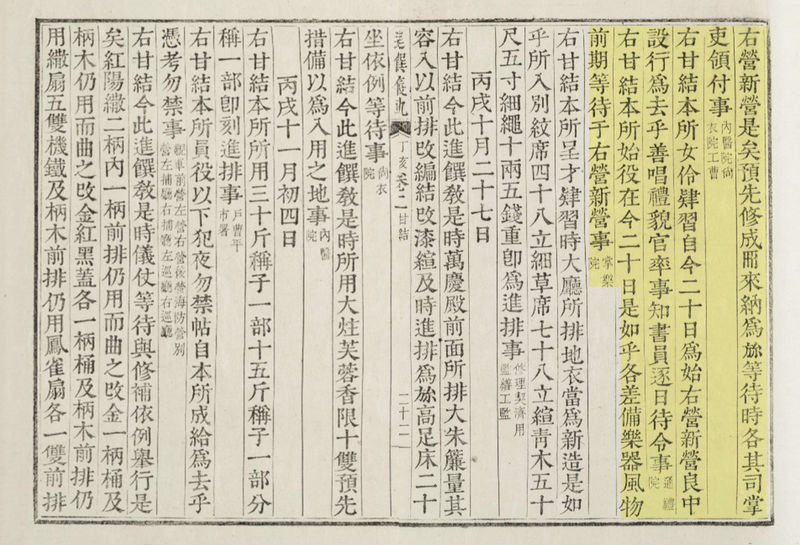 右營新營是矣預先修成而來納爲旀等待時各其司掌
吏領付事內醫院尙衣院工曹
右甘結本所女伶肄習自今二十日爲始右營新營良中
設行爲去乎善唱禮貌官率事知書員逐日待令事通禮院
右甘結本所始役在今二十日是如乎各差備樂器風物
前期等待于右營新營事掌樂院
右甘結本所呈才肄習時大廳所排地衣當爲新造是如
乎所入別紋席四十八立細草席七十八立縇靑木五十
尺五寸細繩十兩五錢重卽爲進排事修理契濟用監繕工監
丙戌十月二十七日
右甘結今此進饌敎是時萬慶殿前面所排大朱簾量其
容入以前排改編結改漆縇及時進排爲旀高足床二十
進饌儀軌 丁亥 卷二 甘結 二十二
坐依例等待事尙衣院
右甘結今此進饌敎是時所用大炷芙蓉香限十雙預先
措備以爲入用之地事內醫院
丙戌十一月初四日
右甘結本所所用三十斤稱子一部十五斤稱子一部分
稱一部卽刻進排事戶曹平市署
右甘結本所員役以下犯夜勿禁帖自本所成給爲去乎
憑考勿禁事親軍前營左營右營後營海防營別營左補廳右補廳左巡廳右巡廳
右甘結今此進饌敎是時儀仗等待與修補依例擧行是
矣紅陽繖二柄內一柄前排仍用而曲之改金一柄桶及
柄木仍用而曲之改金紅黑蓋各一柄桶及柄木前排仍
用繖扇五雙機鐵及柄木前排仍用鳳雀扇各一雙前排